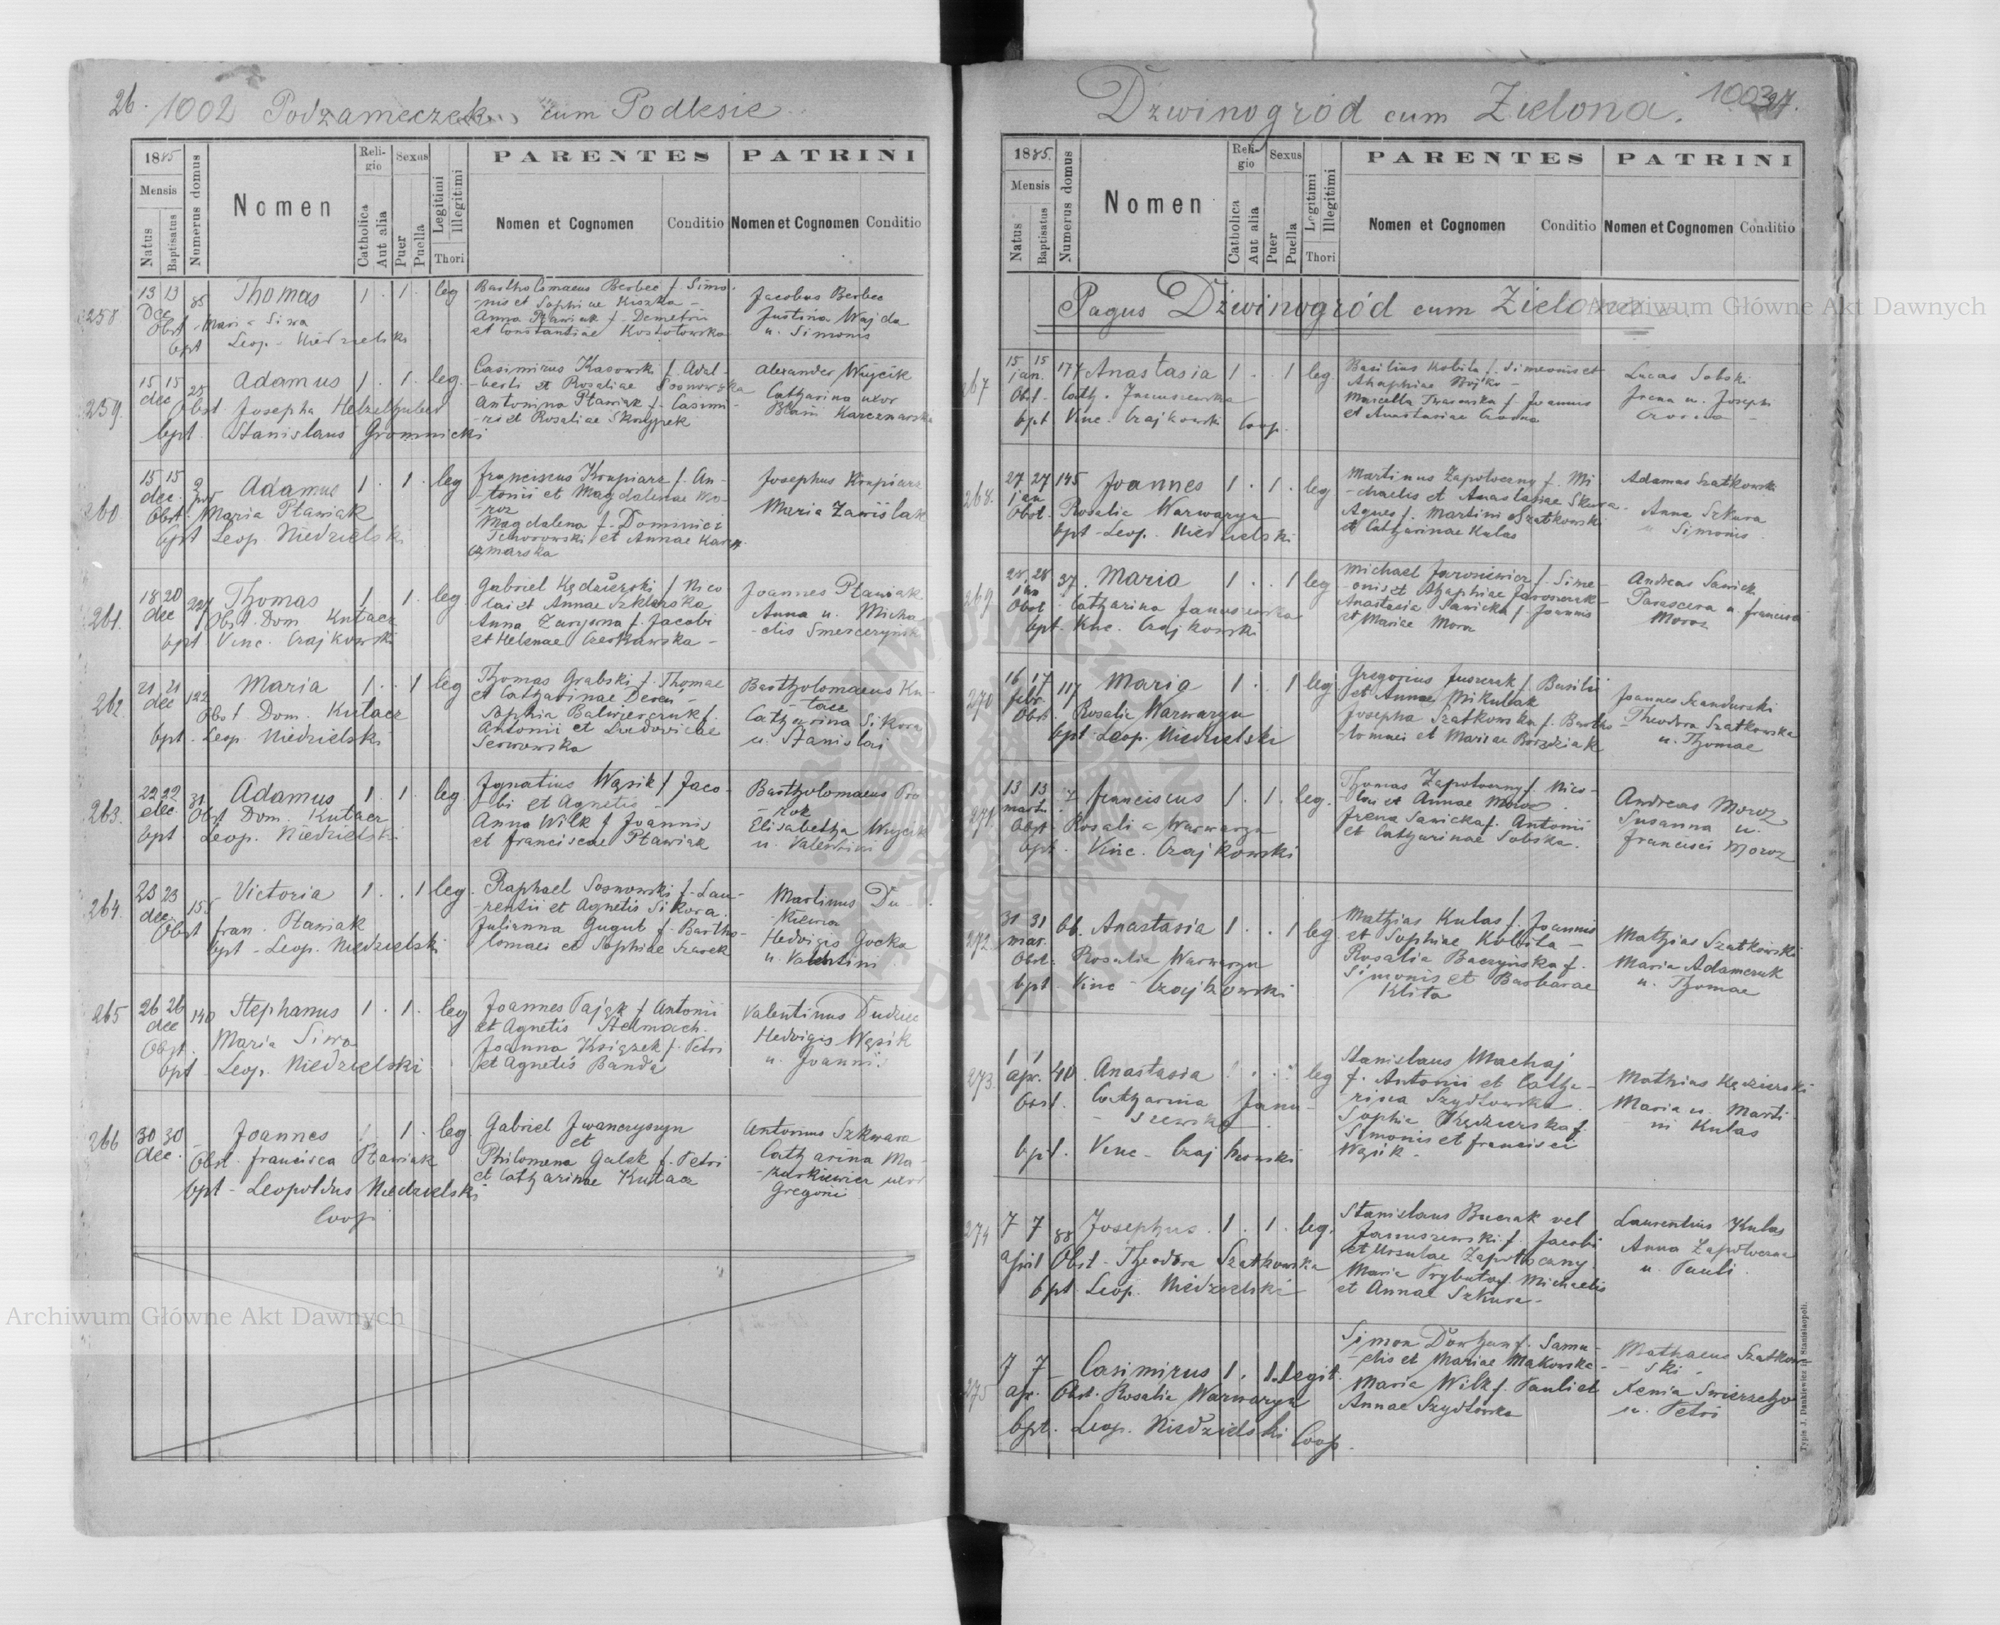 26. 1002 Podzameczek cum Podlesie
1885
Mensis
Natus
Baptisatus
Numerus domus
Nomen
Religio
Catholica
Aut alia
Sexus
Puer
Puella
Legitimi
Illegitimi
Thori
PARENTES
Nomen et Cognomen
Conditio
PATRINI
Nomen et Cognomen
Conditio
258
13 13 85 Thomas 1 . 1 . leg
Dec
Obst. Maria Siwa
bpt Leop. Niedzielski
Bartholomaeus Berbec f. Simo-
nis et Sophiae Kiszka -
Anna Pławiak f. Demetrii
et Constantiae
Jacobus Berbec
Justina Wajda
u. Simonis
259.
15 15 25 Adamus 1 . 1 . leg.
dec
Obst. Josepha
bpt. Stanislaus Gromnicki
Casimirus Kasowski f. Adal-
-berti et Rosaliae Sosnowska
Antonina Pławiak f. Casimi-
-ri et Rosaliae
Alexander Wujcik
Catharina uxor
Karczmarska
260
15 15 Adamus 1 . 1 . leg
dec.
Obst. Maria Pławiak
bpt Leop. Niedzielski
Franciscus f. An-
-tonii et Magdalenae
Magdalena f. Dominici
et Annae Karcz-
czmarska
Josephus
Maria Zawiślak
261.
18 20 227 Thomas 1 . 1 . leg
dec
Obst. Dom Kutacz
bpt Vinc. Czajkowski
Gabriel Kędzierski f Nico
lai et Annae Szklarska
Anna f. Jacobi
et Helenae
Joannes Pławiak
Anna u. Micha
-elis
262.
21 21 122 Maria 1 . . 1 leg
dec
Obst Dom. Kutacz
bpt. Leop. Niedzielski
Thomas Grabski f. Thomae
et Catharinae Dereń
Sophia f.
Antonii et Ludovicae
Bartholomaeus Ku-
-tacz
Catharina Sikora
u. Stanislai
263.
22 22 31 Adamus 1 . 1 . leg.
dec
Obst Dom. Kutacz
bpt Leop. Niedzielski
Ignatius Wąsik f Jaco-
-bi et Agnetis -
Anna Wilk f Joannis
et Franciscae Pławiak
Bartholomaeus Pro
-rok
Elisabetha Wujcik
u. Valentini
264.
23 23 155 Victoria 1 . . 1 leg.
dec.
Obst fran. Pławiak
bpt - Leop. Niedzielski
Raphael Sosnowski f. Lau-
-rentii et Agnetis Sikora.
Julianna Gugul f. Bartho-
lomaei et Sophiae
Martinus Du-
-kiewicz
Hedvigis Gocka
u. Valentini
265
26 26 140 Stephanus 1 . 1 . leg
dec
Obst. Maria Siwa
bpt Leop. Niedzielski
Joannes Pająk f Antonii
et Agnetis Stelmach.
Joanna Książek f. Petri
et Agnetis Banda
Valentinus Dudzic
Hedvigis Wąsik
u. Joannis
266
30 30 - Joannes . 1 . leg.
dec.
Obst. francisca Pławiak
bpt - Leopoldus Niedzielski
Coop
Gabriel Iwanczyszyn
et
Philomena Galsk f. Petri
et Catharinae Kutacz
Antonius Szkwara
Catharina Ma-
-zurkiewicz uxor
Gregorii
Dzwinogród cum Zielona. 1003
1885.
Mensis
Natus
Baptisatus
Numerus domus
Nomen
Religio
Catholica
Aut alia
Sexus
Puer
Puella
Legitimi
Illegitimi
Thori
PARENTES
Nomen et Cognomen
Conditio
PATRINI
Nomen et Cognomen
Conditio
Pagus Dzwinogród cum Zielona
267
15 15 177 Anastasia 1 . . 1 leg.
jan.
Obst. Cath. Januszewska
bpt Vinc. Czajkowski Coop.
Basilius Kobita f. Simeonis et
Agaphiae Bojko -
Marcella f. Joannis
et Anastasiae
Lucas Sobski
Irena u. Josephi
268.
27 27 145 Joannes 1 . 1 . leg
jan
Obst. Rosalia Warwaryn
bpt - Leop. Niedzielski
Martinus Zapotoczny f. Mi
-chaelis et Anastasiae Skura.
Agnes f. Martini Szatkowski
et Catharinae Kulas
Adamus Szatkowski
Anna Szkura
u Simonis
269
28 28 37. Maria 1 . . 1 leg
jan
Obst. Catharina Januszewska
bpt. Vinc. Czajkowski
Michael Jarosiewicz f. Sime-
-onis et Agaphiae
Anastasia Sawicka f. Joannis
et Mariae Moroz
Andreas Sawicki
Parascera u. francisci
Moroz
270
16 17 117 Maria 1 . . 1 leg
febr.
Obst. Rosalia Warwaryn
bpt Leop. Niedzielski
Gregorius Juszczak f. Basilii
et Annae Mikulak
Josepha Szatkowska f. Bartho
lomaei et Mariae
Joannes
Theodora Szatkowska
u. Thomae
271.
13 13 7 franciscus 1 . 1 . leg.
marti
Obst. Rosalia Warwaryn
bpt. Vinc. Czajkowski
Thomas Zapotoczny f. Nico-
lai et Annae Moroz.
Irena Sawicka f. Antonii
et Catharinae Sobska.
Andreas Moroz
Susanna u.
francisci Moroz
272.
31 31 66. Anastasia 1 . . 1 leg
mar.
Obst. Rosalia Warwaryn
bpt Vinc - Czajkowski
Mathias Kulas f. Joannis
et Sophiae Kobita -
Rosalia Baczyńska f.
Simonis et Barbarae
Klita
Mathias Szatkowski
Maria Adamczuk
u. Thomae
273.
1 1 40. Anastasia leg
apr.
Obst. Catharina Janu-
- szewska
bpt. Vinc - Czajkowski
Stanislaus Machaj
f. Antonii et Catha-
rina Szydłowska.
Sophia Kędzierska f.
Simonis et francisci
Wąsik -
Mathias Kędzierski
Maria u. Marti
ni Kulas
274
7 7 88 Josephus. 1 . 1 . leg.
april Obst - Theodora Szatkowska
bpt - Leop. Niedzielski
Stanislaus Buczak vel
Januszewski f. Jacobi
et Ursulae Zapotoczny
Maria f. Michaelis
et Annae Szkura -
Laurentius Kulas
Anna Zapotoczna
u. Pauli.
275
7 7 - Casimirus 1 . 1 . Legit.
ap. Obst. Rosalia Warwaryn
bpt. Leop. Niedzielski Coop.
Simon f. Samu-
-elis et Mariae Makowska -
Maria Wilk f. Pauli et
Annae Szydłowska
Mathaeus Szatkow-
- ski
Xenia
u. Petri
Typis J. Dankiewicz in Stanislaopoli.
Archiwum Główne Akt Dawnych
Archiwum Główne Akt Dawnych